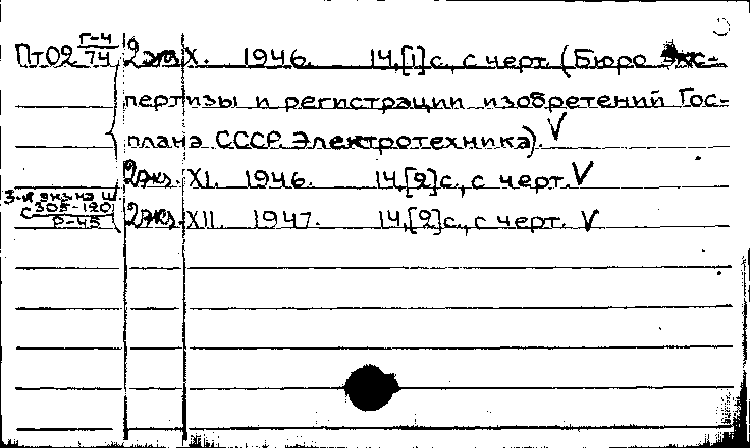 Пт02 Г-4/74 2 экз. X. 1946. 14,[1]с., с черт. (Бюро Экс-
пертизы и регистрации изобретений Гос-
плана СССР. Электротехника). V
2 экз. XI. 1946. 14,[2]с., с черт. V
3-й экз на ш.
С 305-120/Р-45 2 экз. XII. 1947. 14,[2]с., с черт. V